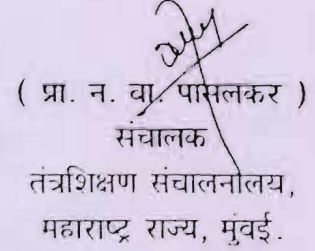 ( प्रा. न. वा. पासलकर )
संचालक
तंत्रशिक्षण संचालनालय,
महाराष्ट्र राज्य, मुंबई.